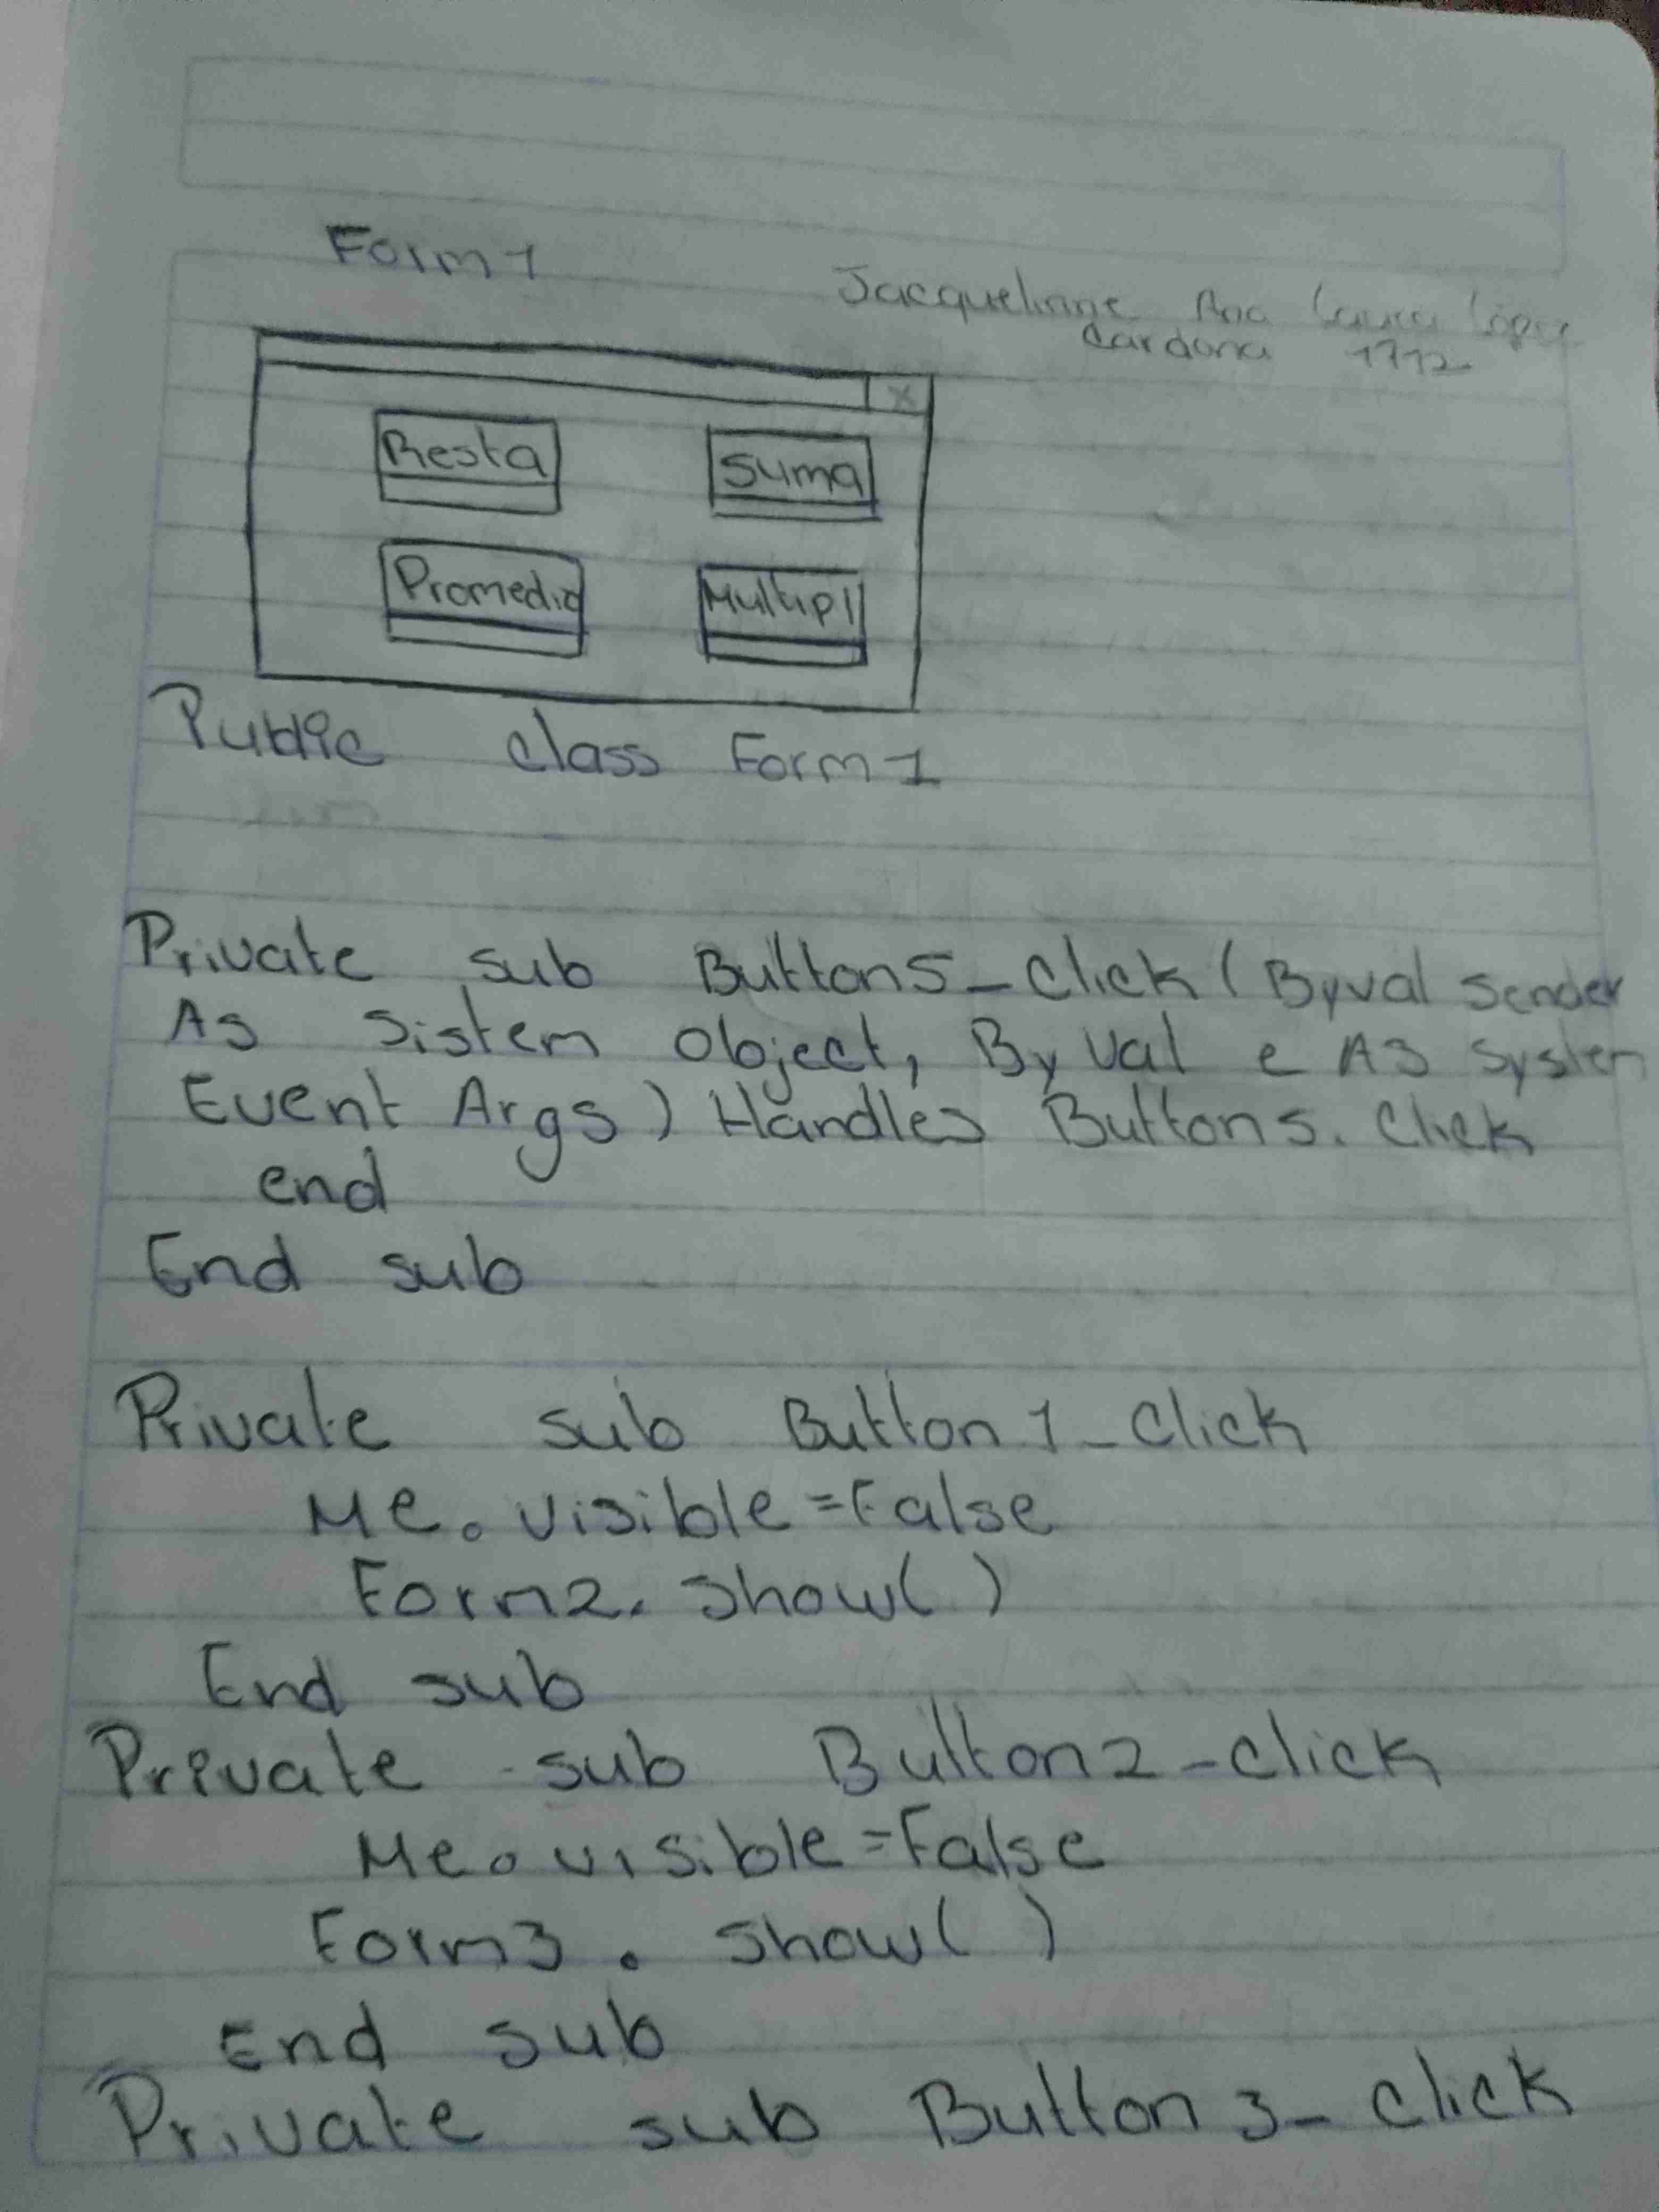 Form 1
Jacqueline Ana Laura López
Cardona 1712
X
Resta
Suma
Promedio
Multipl
Public class Form 1
Private sub Button5_Click (Byval sender
As Sistem Object, By Val e As System
Event Args) Handles Button5. Click
end
End sub
Private sub Button 1_Click
Me. visible = False
Form2. Show( )
End sub
Private sub Button2_click
Me. visible = False
Form3. Show( )
End sub
Private sub Button 3_ click